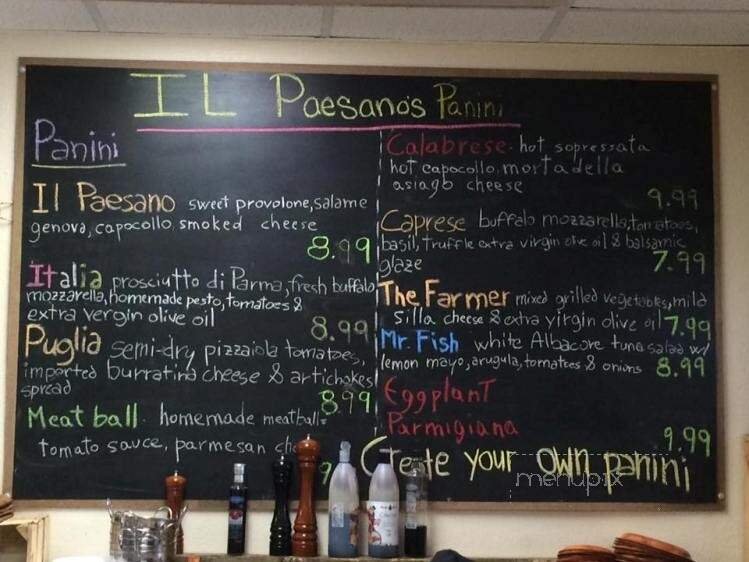 IL Paesano's Panini
Panini
Il Paesano sweet provolone, salame
genova, capocollo, smoked cheese
8.99
Italia prosciutto di Parma, fresh buffalo
mozzarella, homemade pesto, tomatoes &
extra vergin olive oil
8.99
Puglia semi-dry pizzaiola tomatoes,
imported burratina cheese & artichokes
spread
8.99
Meat ball. homemade meatball
tomato sauce, parmesan
Calabrese. hot sopressata
hot capocollo, mortadella
asiago cheese
9.99
Caprese buffalo mozzarella, tomatoes,
basil, truffle extra virgin olive oil & balsamic
glaze
7.99
The Farmer mixed grilled vegetables, mild
silla cheese & extra virgin olive oil 7.99
Mr. Fish white Albacore tuna salad w/
lemon mayo, arugula, tomatoes & onions 8.99
Eggplant
Parmigiana
9.99
Create your own panini
menupix